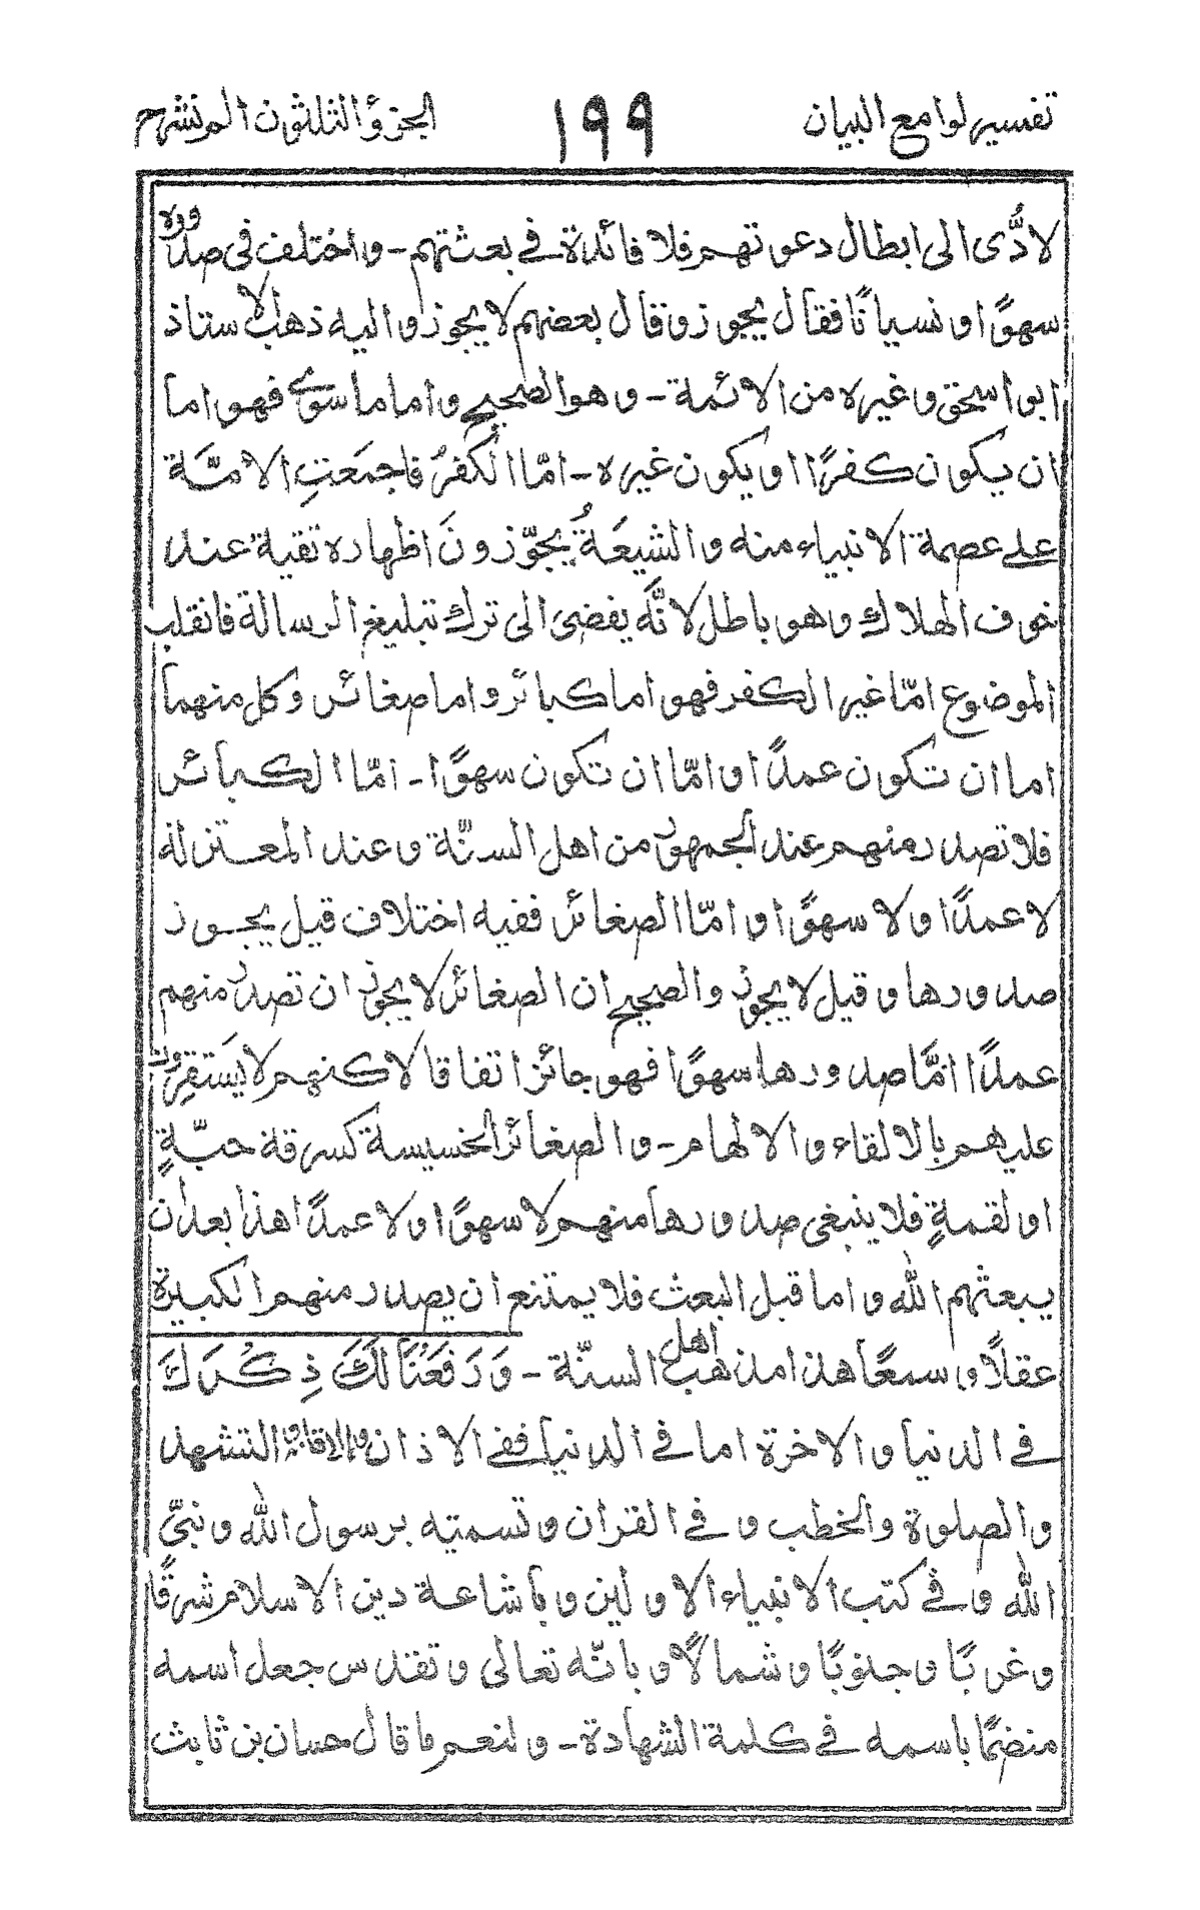 تفسير لوامع البيان ١٩٩ الجزؤ الثلثون الم نشرح
لادُّى الى ابطال دعوتهم فلا فائدة في بعثتهم - واختلف فى صدوره
سهوًا او نسيانًا فقال يجوز وقال بعضهم لا يجوز واليه ذهب الاستاذ
ابو اسحٰق وغيره من الائمة - وهو الصحيح واما ما سوى فهو اما
ان يكون كفرًا او يكون غيره - امّا الكفرُ فاجمَعتِ الامّة
على عصمة الانبياء منه والشيعَةُ يجوّزونَ اظهاره تقية عند
خوف الهلاك وهو باطل لانَّه يفضى الى ترك تبليغ الرسالة فانقلب
الموضوع امّا غير الكفر فهو اما كبائر واما صغائر وكل منهما
اما ان تكون عمدًا او امّا ان تكون سهوًا - امّا الكبائر
فلا تصدر منهم عند الجمهور من اهل السنّة وعند المعتزلة
لا عمدًا ولا سهوًا و امّا الصغائر ففيه اختلاف قيل يجوز
صدورها وقيل لا يجوز والصحيح ان الصغائر لا يجوز ان تصدر منهم
عمدًا امَّا صدورها سهوًا فهو جائز اتفاقا لاكنهم لا يَستقِرون
عليهم بالالقاء والالهام - والصغائر الخسيسة كسرقة حبّةٍ
او لقمةٍ فلا ينبغى صدورها منهم لا سهوًا ولا عمدًا هذا بعد ان
يبعثهم الله واما قبل البعث فلا يمتنع ان يصدر منهم الكبيرة
عقلًا و سمعًا هذا مذهب اهل السنّة - وَرَفَعْنَا لَكَ ذِكْرَكَ
فى الدنيا والاخرة اما فى الدنيا ففى الاذان والاقامة التشهد
والصلوة والخطب وفى القران وتسمته برسول الله ونبىّ
الله وفى كتب الانبياء الاولين وباشاعة دين الاسلام شرقًا
وغربًا وجنوبًا وشمالًا وبانّه تعالى وتقدس جعل اسمه
منضمًا باسمه فى كلمة الشهادة - ولنعم ما قال حسان بن ثابت